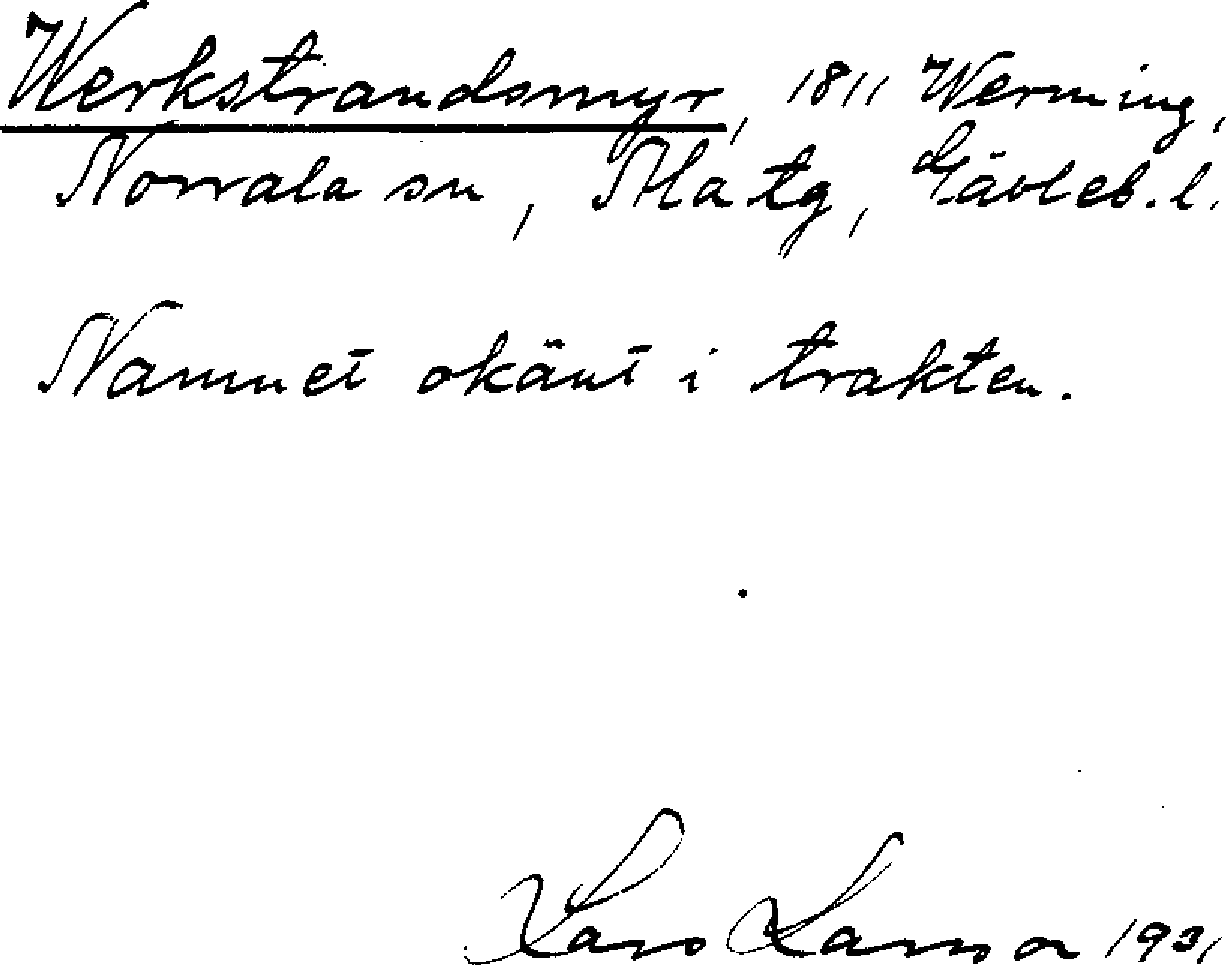 Werkstrandsmyr, 1811 Werming,
Norrala sn, Ala tg, Gävleb. l.
Namnet okänt i trakten.
Lars Larson 1931